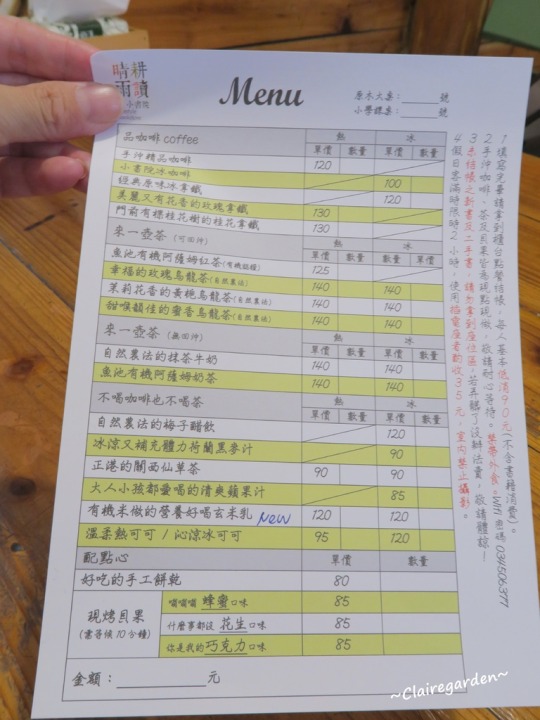 晴耕
雨讀
小書院
Menu
原木大桌：______號
小學課桌：______號
品咖啡 coffee 熱 冰
單價 數量 單價 數量
手沖精品咖啡 120
小書院冰咖啡 100
經典原味冰拿鐵 120
美麗又有花香的玫瑰拿鐵 130
門前有棵桂花樹的桂花拿鐵 130
來一壺茶（可回沖） 熱 冰
單價 數量 單價 數量
魚池有機阿薩姆紅茶(有機認證) 125
幸福的玫瑰烏龍茶(自然農法) 140 140
茉莉花香的黃梔烏龍茶(自然農法) 140 140
甜喉韻佳的蜜香烏龍茶(自然農法) 140 140
來一壺茶（無回沖） 熱 冰
單價 數量 單價 數量
自然農法的抹茶牛奶 140 140
魚池有機阿薩姆奶茶 140 140
不喝咖啡也不喝茶 熱 冰
單價 數量 單價 數量
自然農法的梅子醋飲 120
冰涼又補充體力荷蘭黑麥汁 90
正港的關西仙草茶 90 90
大人小孩都愛喝的清爽蘋果汁 85
有機米做的營養好喝玄米乳 New 120 120
溫柔熱可可 / 沁涼冰可可 95 120
配點心 單價 數量
好吃的手工餅乾 80
現烤貝果
(需等候10分鐘)
嗡嗡嗡 蜂蜜口味 85
什麼事都沒 花生口味 85
你是我的巧克力口味 85
金額：____________元
1 填寫完畢請拿到櫃台點餐結帳，每人基本低消90元(不含書籍消費)。
2 手沖咖啡、茶及貝果皆為現點現做，敬請耐心等待。禁帶外食。Wifi 密碼 034506377
3 未結帳之新書及二手書，請勿拿到座位區，若弄髒了沒辦法賣，敬請體諒！
4 假日客滿時限時2小時，使用插電座者酌收35元，室內禁止攝影。
~Clairegarden~